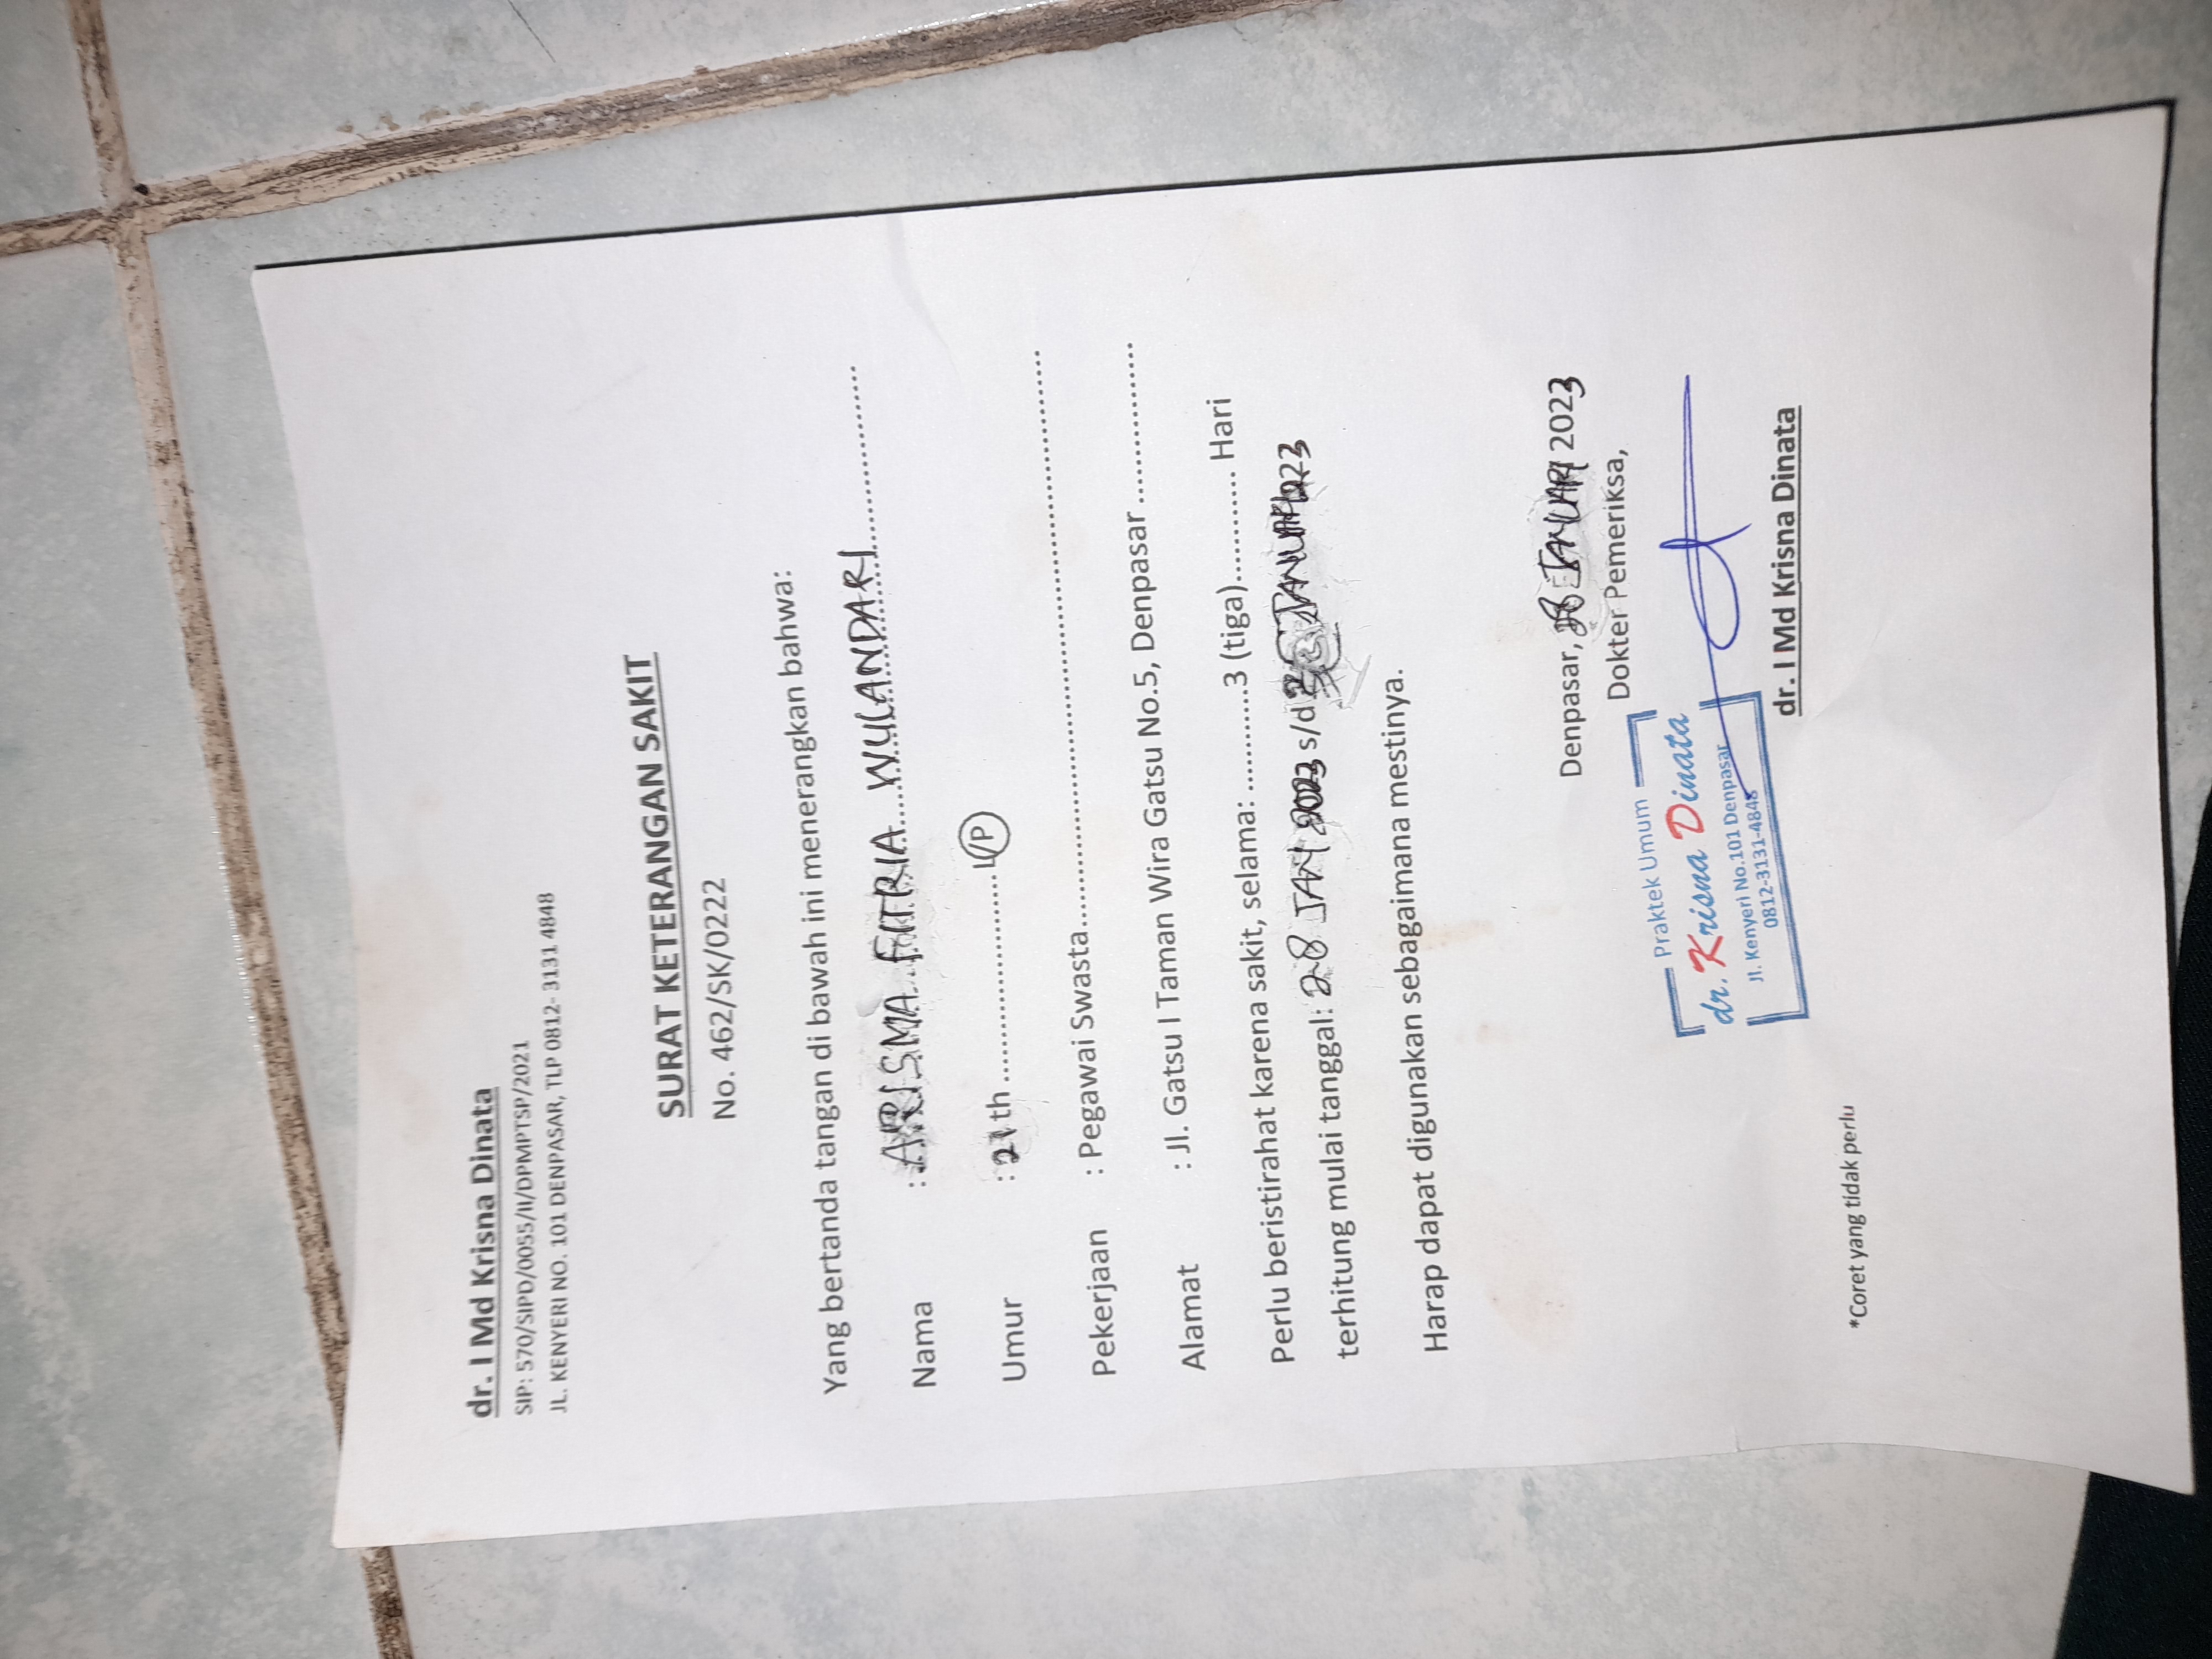 dr. I Md Krisna Dinata
SIP: 570/SIPD/0055/II/DPMPTSP/2021
JL. KENYERI NO. 101 DENPASAR, TLP 0812- 3131 4848
SURAT KETERANGAN SAKIT
No. 462/SK/0222
Yang bertanda tangan di bawah ini menerangkan bahwa:
Nama : ARISMA FITRIA WULANDARI
Umur : 21 th ........................ L/P
Pekerjaan : Pegawai Swasta................................................................
Alamat : Jl. Gatsu I Taman Wira Gatsu No.5, Denpasar ..................
Perlu beristirahat karena sakit, selama: ............3 (tiga)............ Hari
terhitung mulai tanggal: 28 JAN 2023 s/d JANUARI 2023
Harap dapat digunakan sebagaimana mestinya.
Denpasar, 28 JANUARI 2023
Dokter Pemeriksa,
Praktek Umum
dr. Krisna Dinata
Jl. Kenyeri No.101 Denpasar
0812-3131-4848
dr. I Md Krisna Dinata
*Coret yang tidak perlu